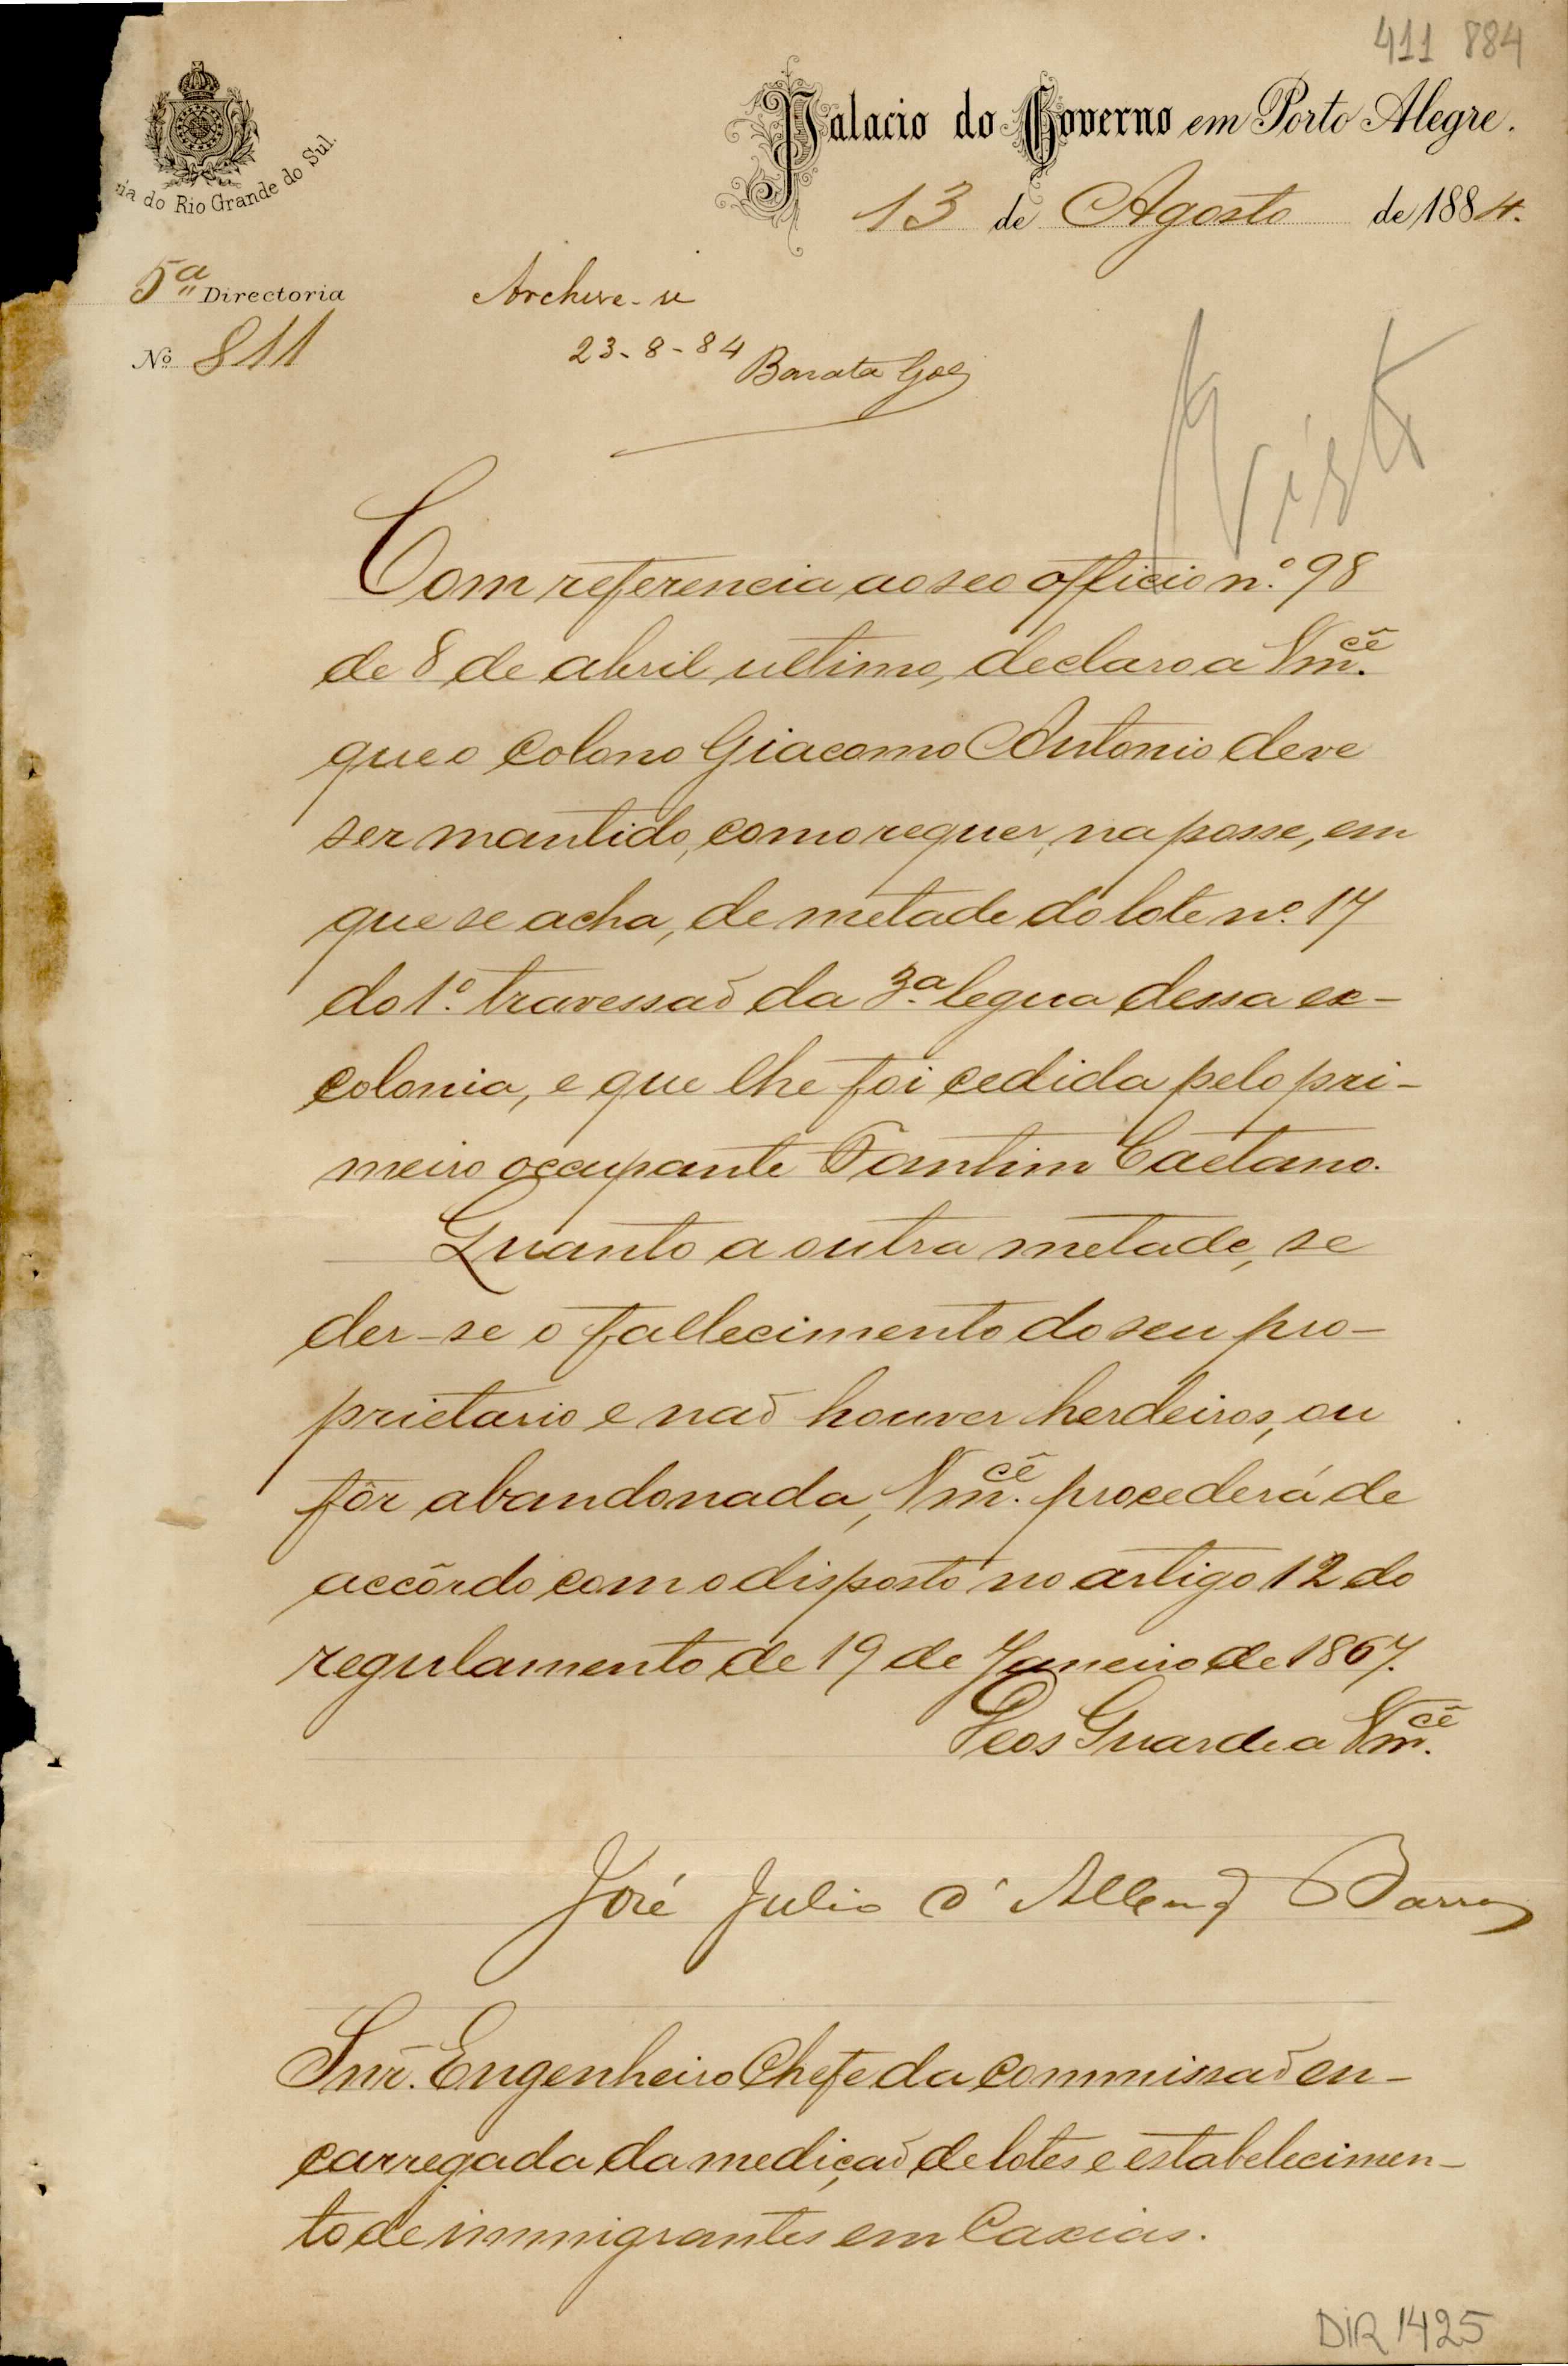 411 884
Palacio do Governo em Porto Alegre.
13 de Agosto de 1884.
ia do Rio Grande do Sul.
5ª Directoria
Nº 811
Archive-se
23-8-84
Barata Góes
Visto
Com referencia ao seo officio n.º 98
de 8 de abril ultimo, declaro a Vm.cê
que o colono Giacomo Antonio deve
ser mantido, como requer, na posse, em
que se acha, de metade do lote nº. 17
do 1.º travessaõ da 3.ª legua dessa ex-
colonia, e que lhe foi cedida pelo pri-
meiro occupante Fantim Caetano.
Quanto a outra metade, se
der-se o fallecimento do seu pro-
prietario e naõ houver herdeiros, ou
fôr abandonada, Vm.cê procederá de
accôrdo com o disposto no artigo 12 do
regulamento de 19 de Janeiro de 1867.
Deos Guarde a Vm.cê
José Julio d'Albuq Barros
Snr. Engenheiro Chefe da commissaõ en-
carregada da mediçaõ de lotes e estabelecimen-
to de immigrantes em Caxias.
DIR 1425